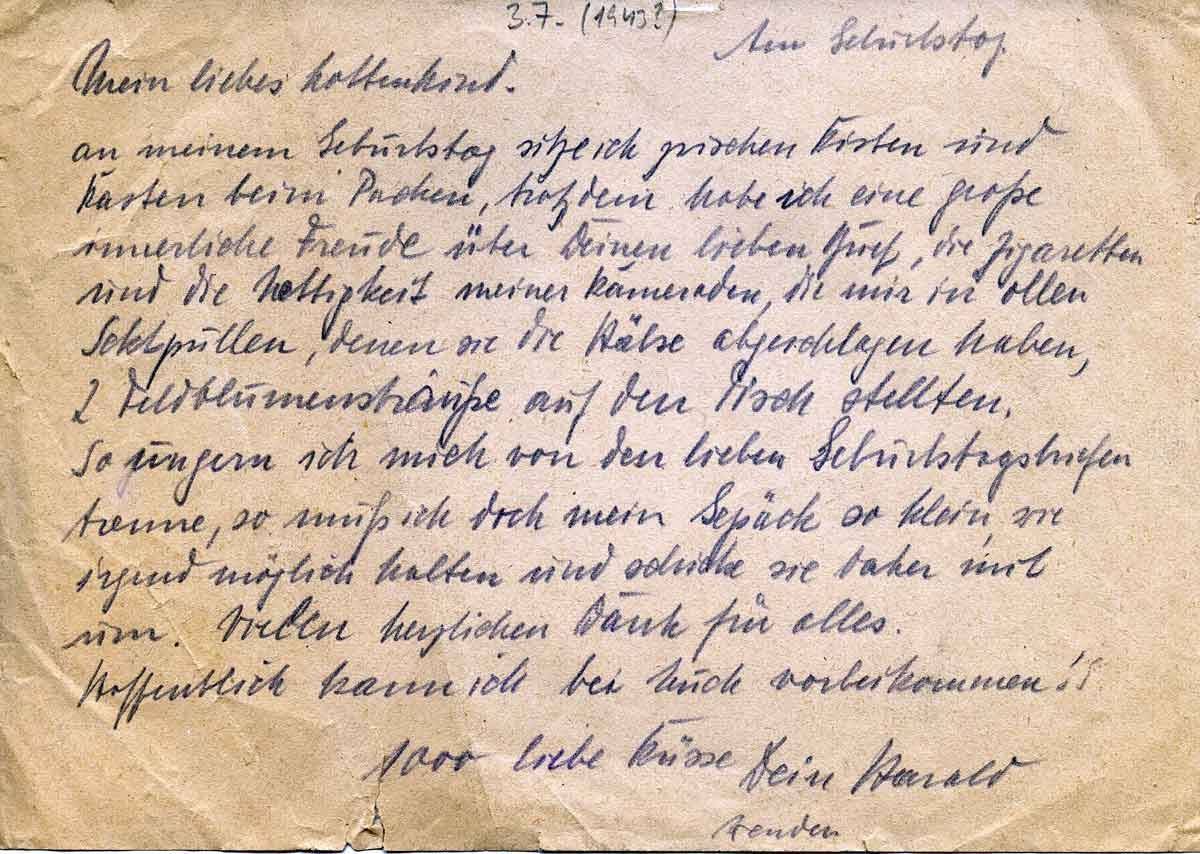 3.7. (1943?)
Am Geburtstag
Mein liebes Kottenkind.
an meinem Geburtstag sitze ich zwischen Kisten und
Kasten beim Packen, trotzdem habe ich eine große
innerliche Freude über Deinen lieben Brief, die Zigaretten
und die Nettigkeit meiner Kameraden, die mir in ollen
Sektpullen, denen sie die Hälse abgeschlagen haben,
2 Feldblumensträuße auf den Tisch stellten.
So ungern ich mich von den lieben Geburtstagsbriefen
trenne, so muß ich doch mein Gepäck so klein, wie
irgend möglich halten und schicke sie daher mit
um. Vielen herzlichen Dank für alles.
Hoffentlich kann ich bei Euch vorbeikommen!!
1000 liebe Küsse Dein Harald